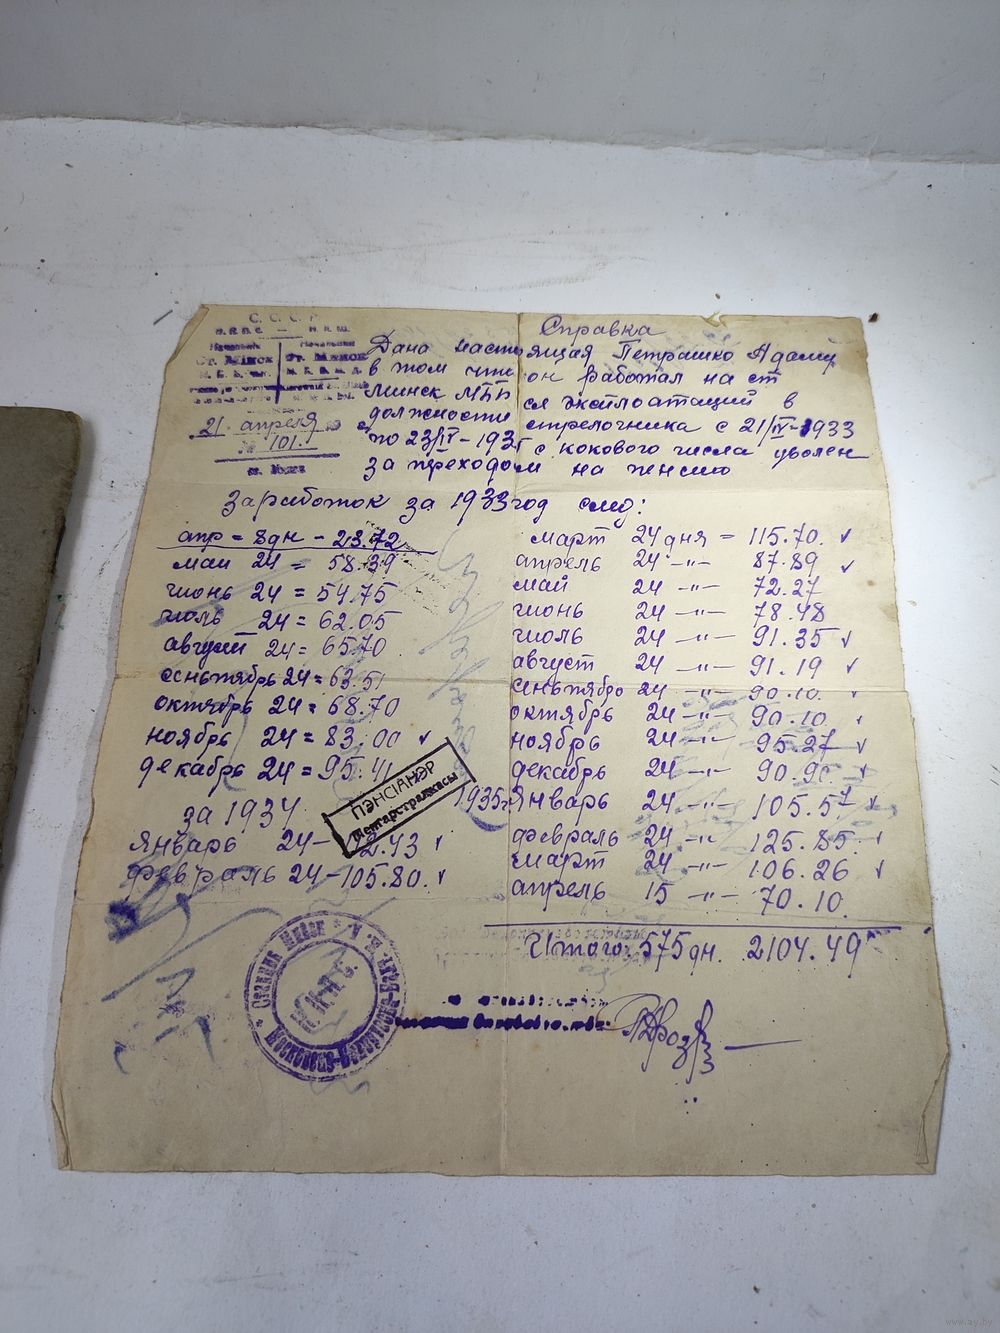 С. С. С. Р.
Н. К. П. С. — Н. К. Ш.
Начальник Начальник
Ст. Мінск Ст. Минск
21 апреля
№ 101.
ст. Минск
Справка
Дана настоящая Петрашко Адаму
в том что он работал на ст
Минск МББ сл эксплоатаций в
должности стрелочника с 21/IV-1933
по 23/IV-1935 с кокового числа уволен
за переходом на пенсию
Заработок за 1933 год след:
апр = 8 дн - 23.72
маи 24 = 58.39
июнь 24 = 54.75
июль 24 = 62.05
август 24 = 65.70
сеньтябрь 24 = 63.51
октябрь 24 = 68.70
ноябрь 24 = 83.00 ✓
декабрь 24 = 95.41
за 1934
январь 24 - 2.43 ✓
февраль 24 - 105.80. ✓
ПЭНСІАНЭР
март 24 дня = 115.70 ✓
апрель 24 -"- 87.89 ✓
май 24 -"- 72.27
июнь 24 -"- 78.48
июль 24 -"- 91.35 ✓
август 24 -"- 91.19 ✓
сеньтябрь 24 -"- 90.10. ✓
октябрь 24 -"- 90.10 ✓
ноябрь 24 -"- 95.27 ✓
декабрь 24 -"- ✓
1935г. Январь 24 -"- 105.57 ✓
февраль 24 -"- 125.85. ✓
март 24 -"- 106.26 ✓
апрель 15 -"- 70.10.
Итого: 575 дн. 2104.49
Станция Минск
Московско-Белорусско-Балт. ж. д.
Н.К.П.С.
www.ay.by